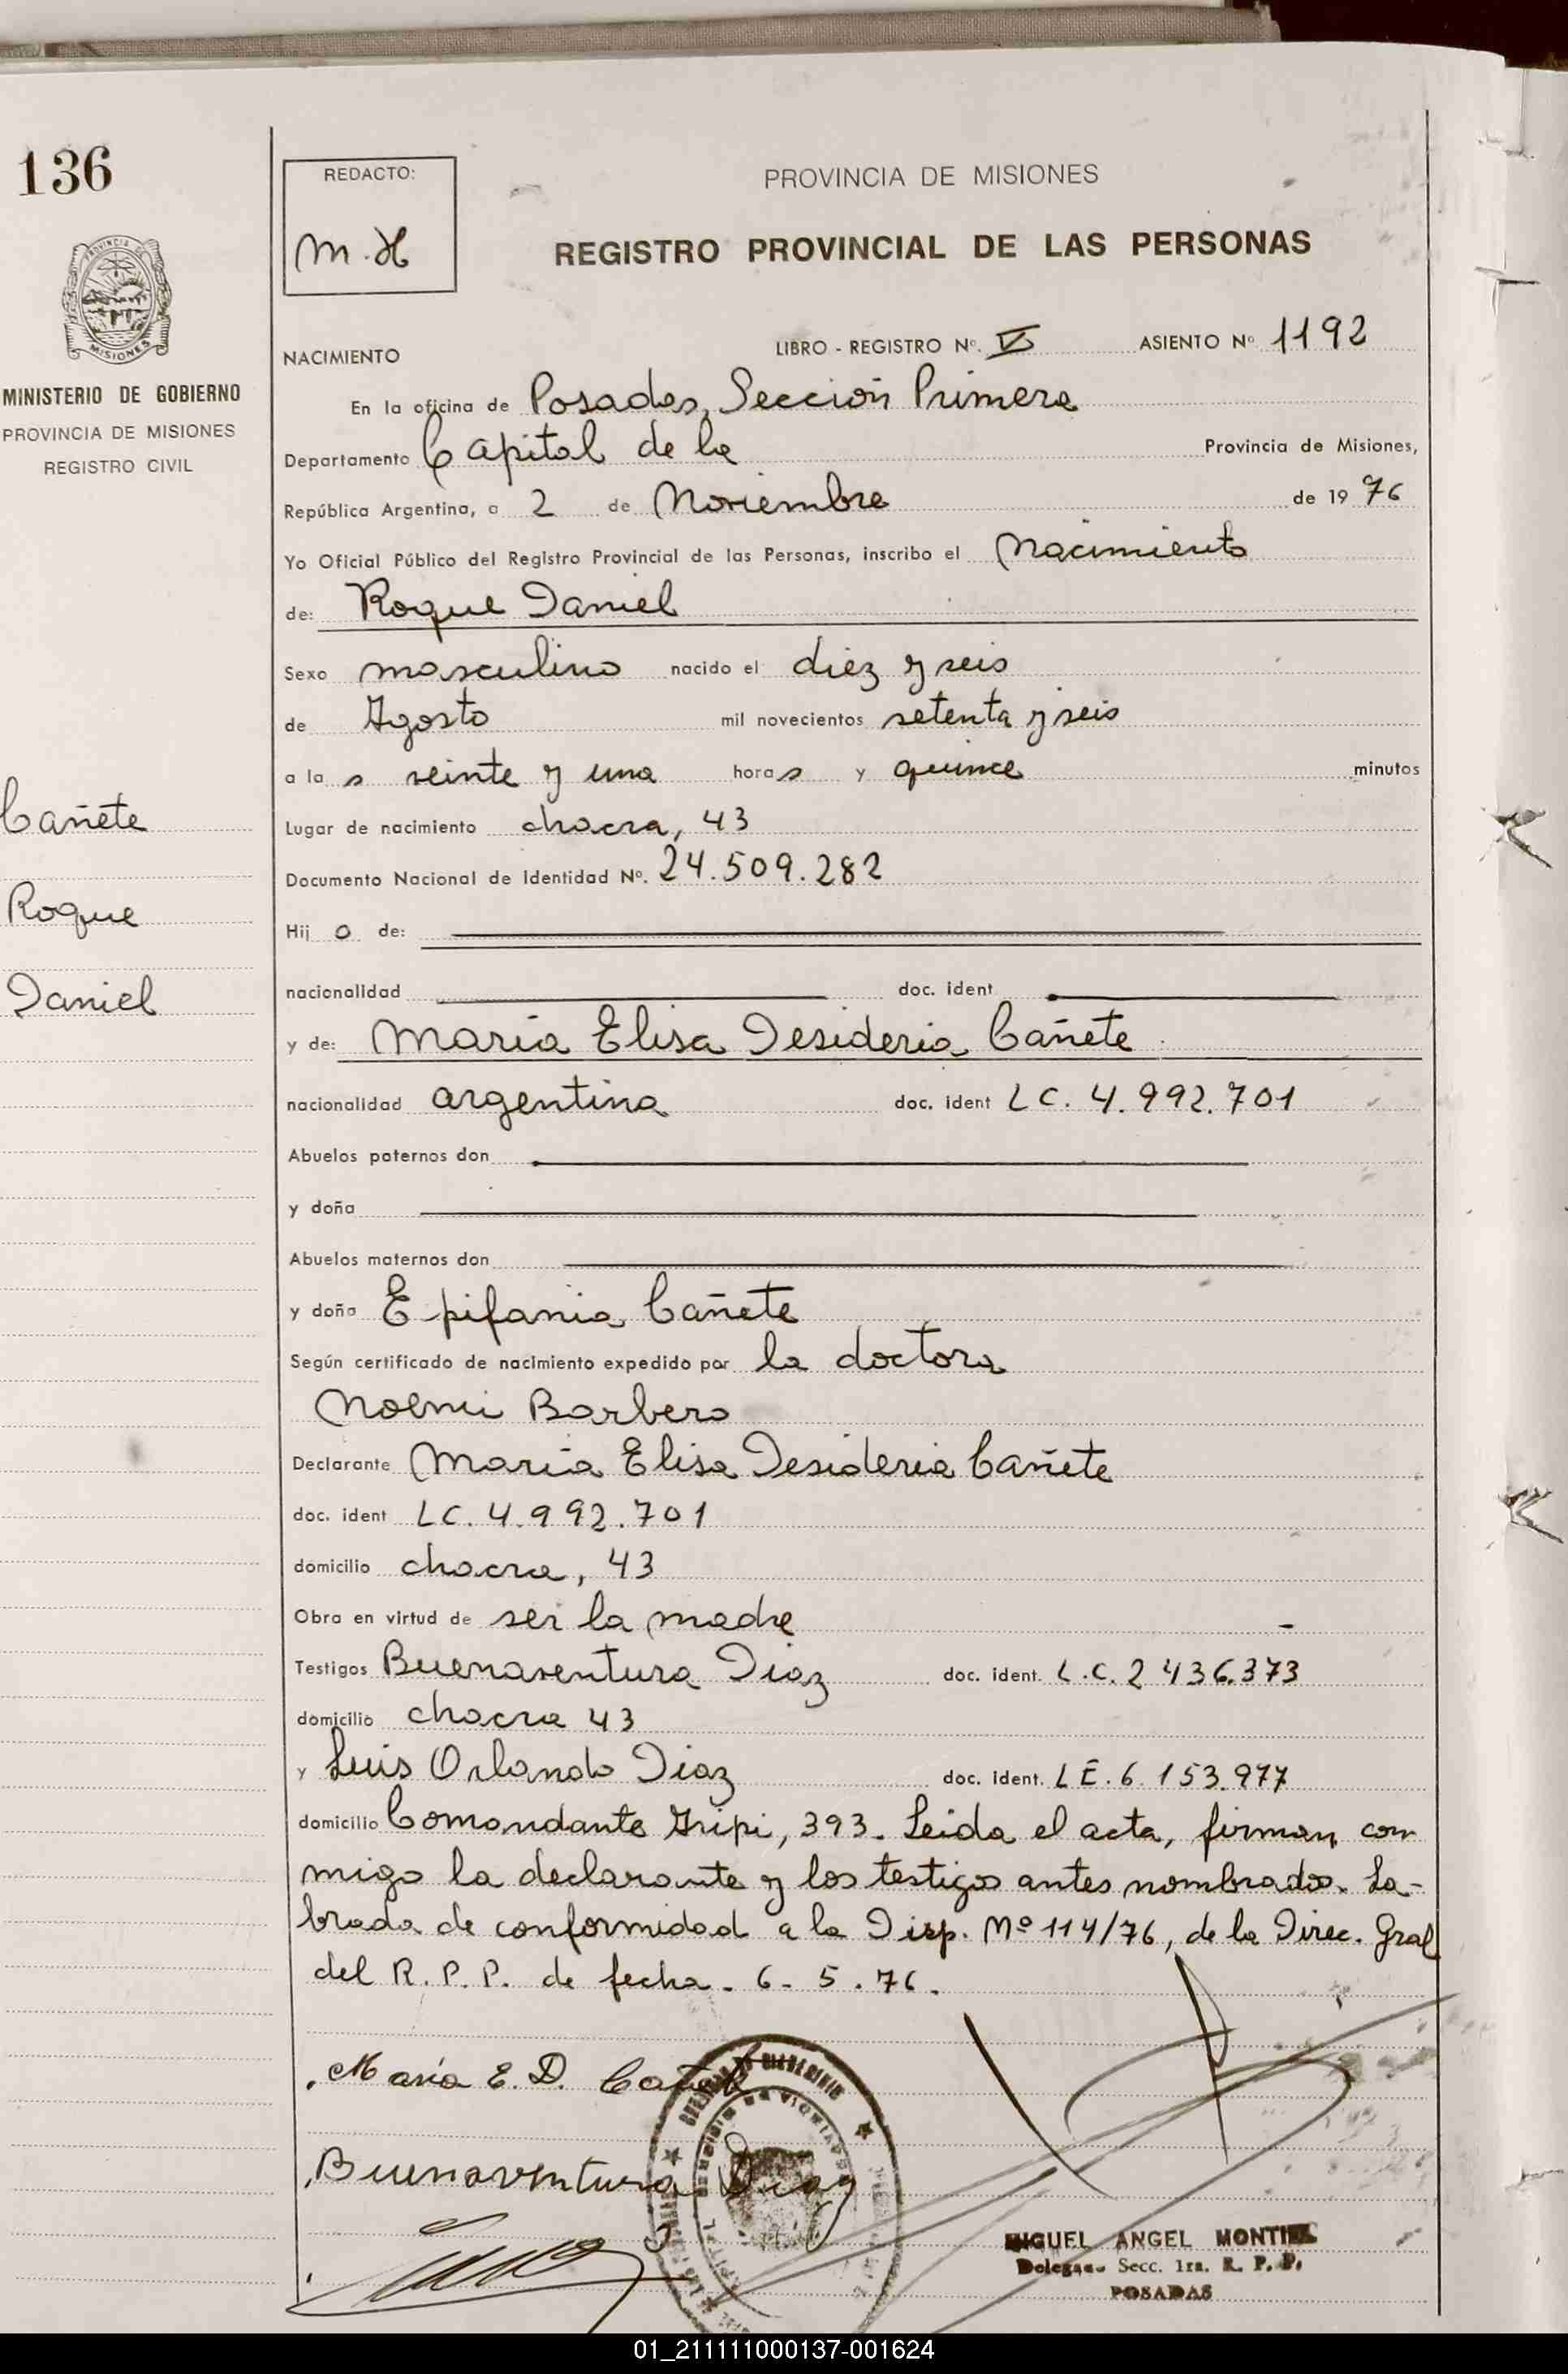 136
REDACTO:
M.H
PROVINCIA DE MISIONES
REGISTRO PROVINCIAL DE LAS PERSONAS
MISIONES
MINISTERIO DE GOBIERNO
PROVINCIA DE MISIONES
REGISTRO CIVIL
NACIMIENTO LIBRO - REGISTRO Nº. ASIENTO Nº 1192
En la oficina de Posadas, Sección Primera
Departamento Capital de la Provincia de Misiones,
República Argentina, a 2 de Noviembre de 19 76
Yo Oficial Público del Registro Provincial de las Personas, inscribo el Nacimiento
de: Roque Daniel
Sexo masculino nacido el diez y seis
de Agosto mil novecientos setenta y seis
a la s veinte y una hora s y quince minutos
Cañete
Lugar de nacimiento chacra, 43
Documento Nacional de Identidad Nº. 24.509.282
Roque
Hij o de:
Daniel
nacionalidad doc. ident
y de: María Elisa Desideria Cañete
nacionalidad argentina doc. ident LC. 4.992.701
Abuelos paternos don
y doña
Abuelos maternos don
y doña Epifania Cañete
Según certificado de nacimiento expedido por la doctora
Noemi Barbero
Declarante María Elisa Desideria Cañete
doc. ident LC. 4.992.701
domicilio chacra, 43
Obra en virtud de ser la madre
Testigos Buenaventura Diaz doc. ident. L.C. 2 436.373
domicilio chacra 43
y Luis Orlando Diaz doc. ident. LE. 6.153.977
domicilio Comandante 393. Leida el acta, firman con
migo la declarante y los testigos antes nombrados. La-
brada de conformidad a la Disp. Nº 114/76, de la Direc. Gral
del R. P. P. de fecha. 6. 5. 76.
María E. D. Cañete
Buenaventura Diaz
MIGUEL ANGEL MONTIEL
Delegado Secc. 1ra. R. P. P.
POSADAS
01_211111000137-001624